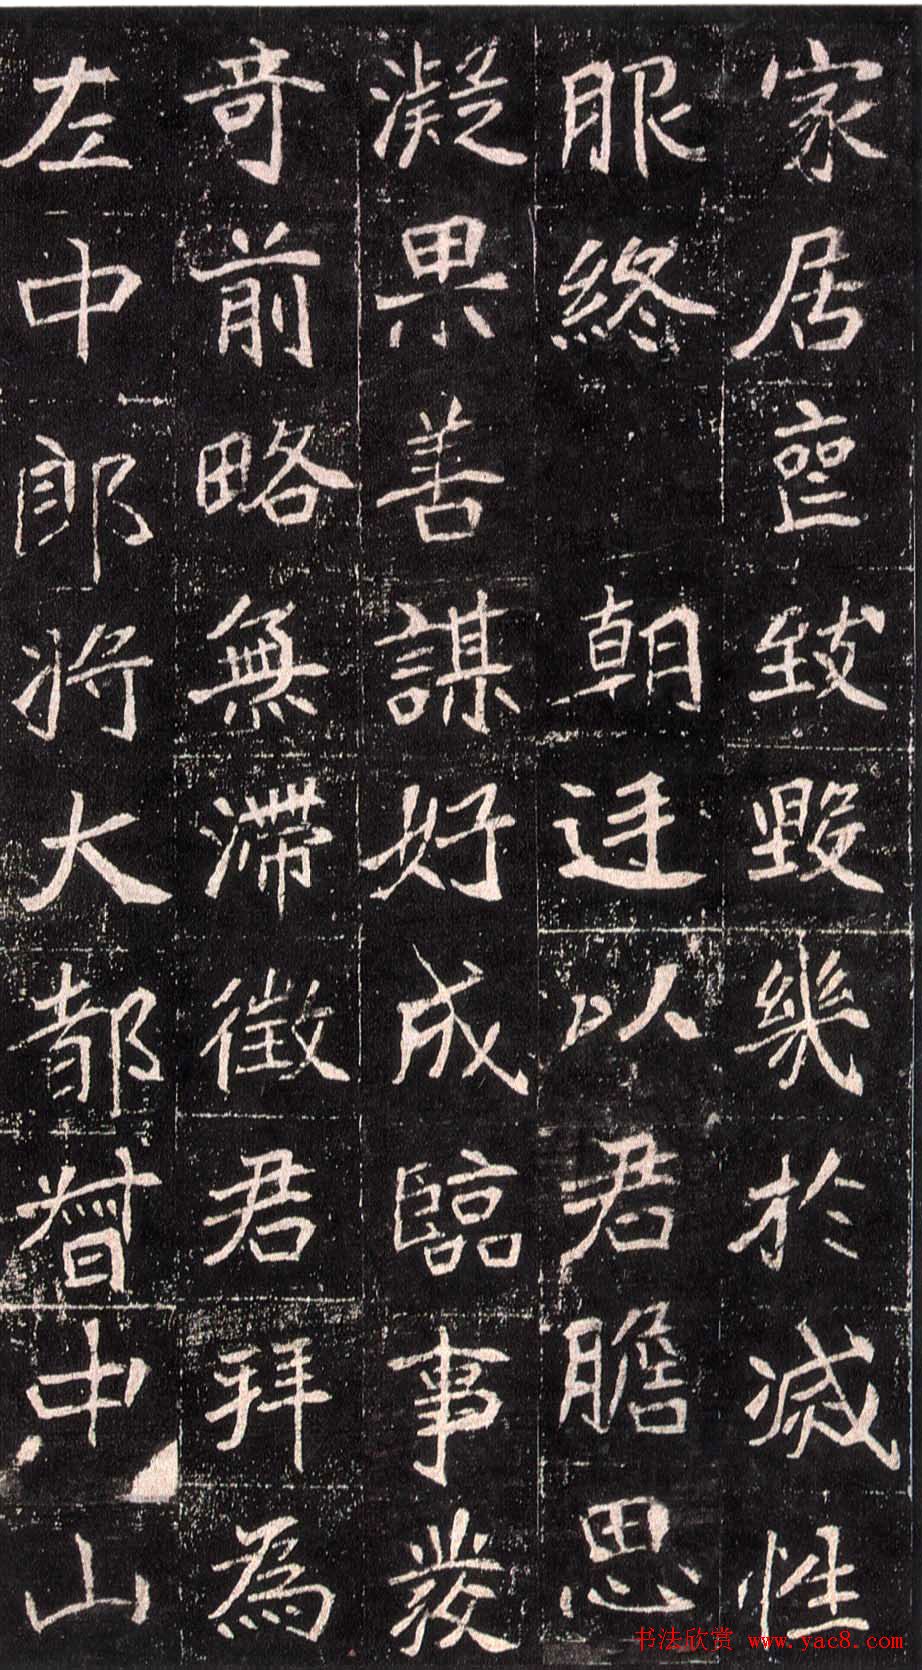 家居喪致毀幾於滅性
服終　朝廷以君膽思
凝果善謀好成臨事發
奇前略無滯徵君拜為
左中郎將大都督中山
书法欣赏 www.yac8.com